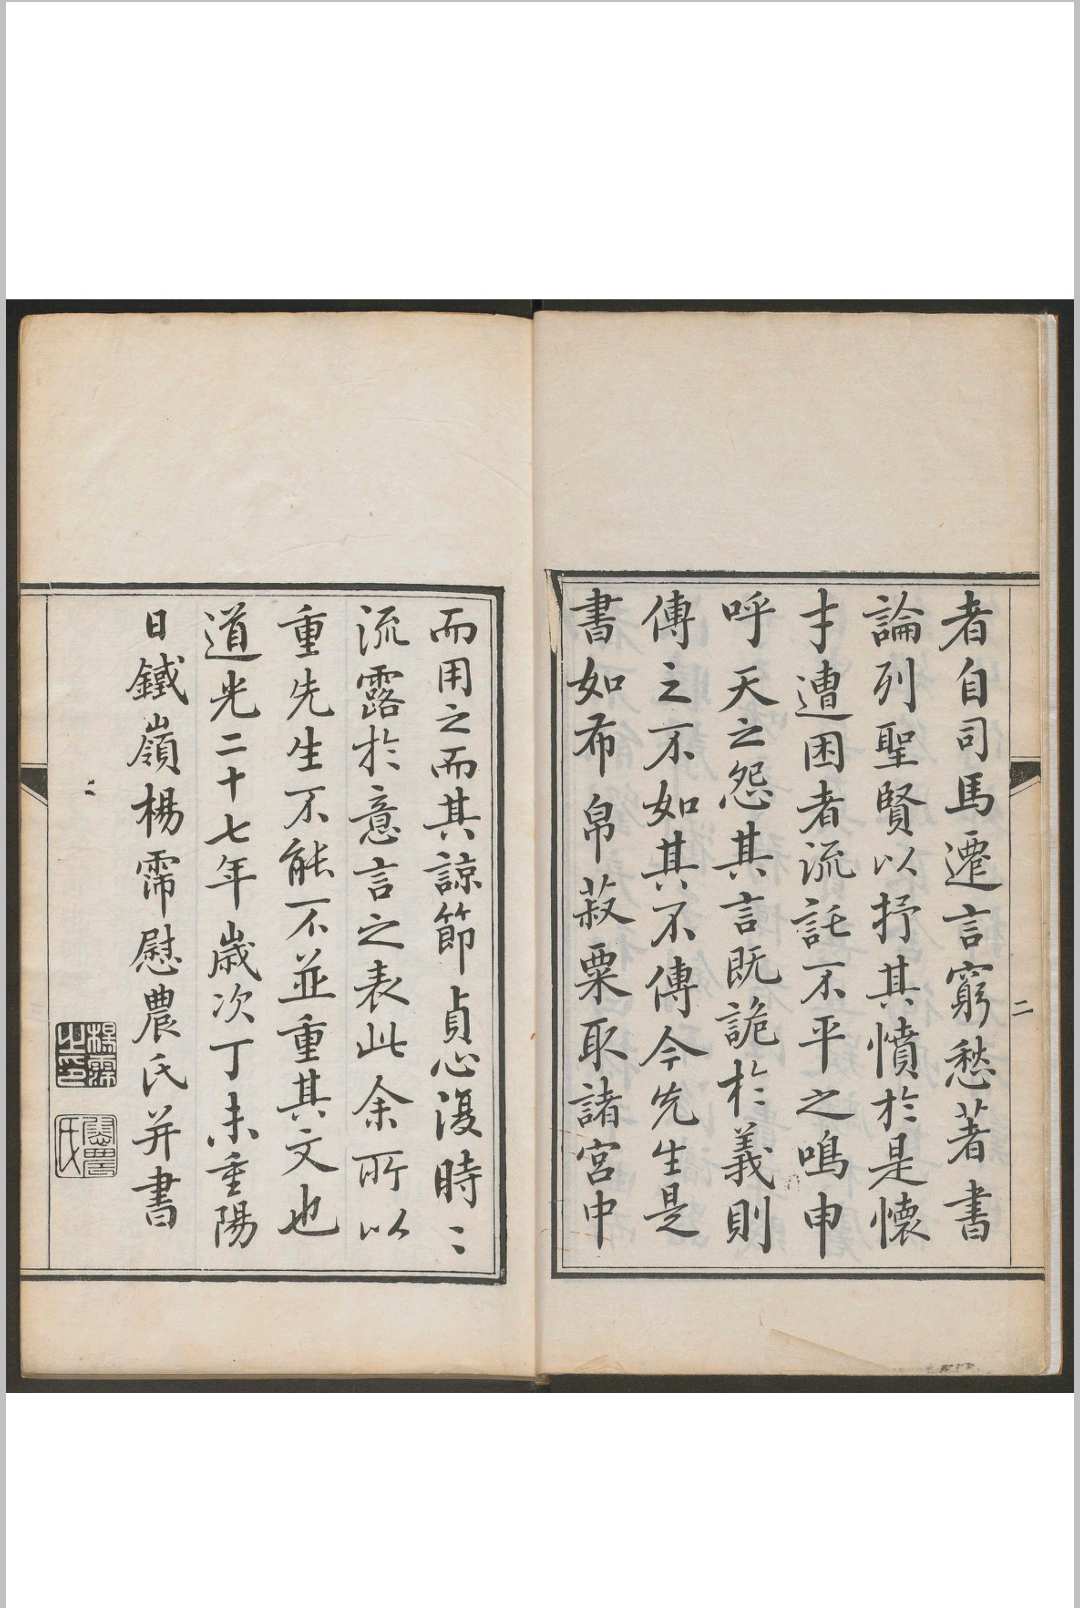 二
者自司馬遷言窮愁著書
論列聖賢以抒其憤於是懷
才遭困者流託不平之鳴申
呼天之怨其言既詭於義則
傳之不如其不傳今先生是
書如布帛菽粟取諸宮中
而用之而其諒節貞心復時〻
流露於意言之表此余所以
重先生不能不並重其文也
道光二十七年歲次丁未重陽
日鐵嶺楊霈慰農氏并書
楊霈之印
慰農氏